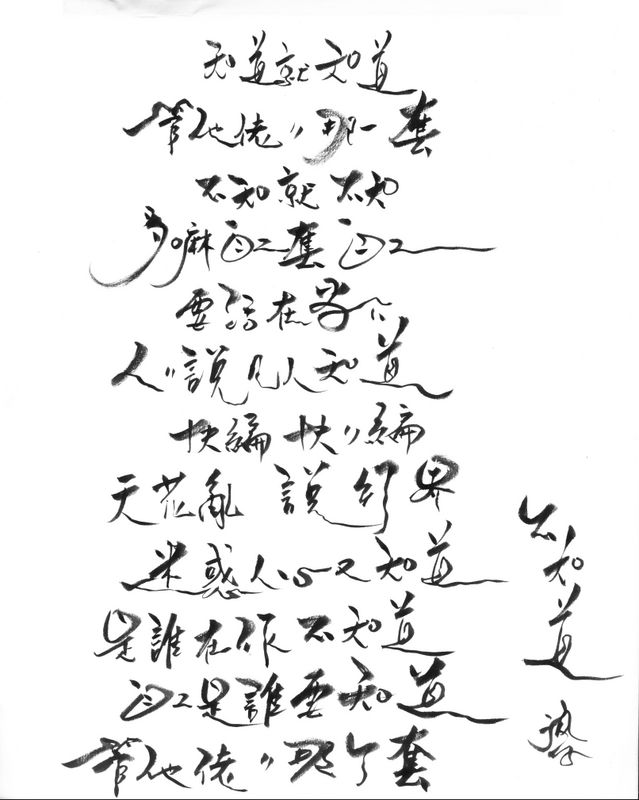 知道就知道
管他佬〃那一套
不知就不知
多嘛自己套自己
要活在当今
人〃說凡人知道
快編快〃編
天花亂說幻界
迷惑人心又知道
是誰在作不知道
自己是誰要知道
管他佬〃那个套
不知道